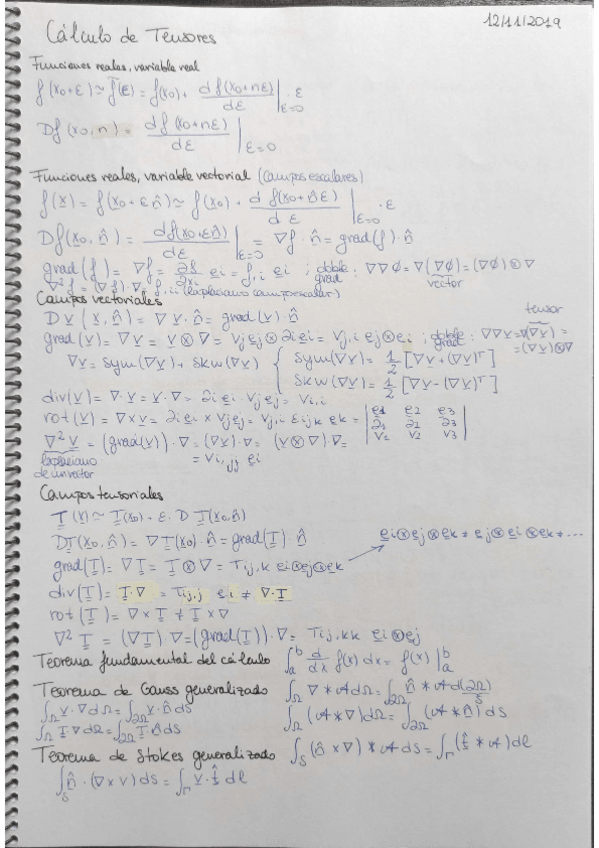 12/11/2019
Cálculo de Tensores
Funciones reales, variable real
f(x₀+ε) ≃ f̄(ε) = f(x₀) + d f(x₀+nε)/dε |ε=0 ε
Df(x₀,n) = d f(x₀+nε)/dε |ε=0
Funciones reales, variable vectorial (campos escalares)
f(x) = f(x₀+ε n̂) ≃ f(x₀) + d f(x₀+n̂ε)/dε |ε=0 ·ε
Df(x₀,n̂) = df(x₀+εn̂)/dε |ε=0 = ∇f · n̂ = grad(f) · n̂
grad(f) = ∇f = ∂f/∂xᵢ eᵢ = f,i eᵢ ; doble grad : ∇∇∅ = ∇(∇∅) = (∇∅)⊗∇
vector
∇²f = (∇f)·∇ = f,ii (laplaciano campo escalar)
Campos vectoriales
tensor
Dv(x,n̂) = ∇v·n̂ = grad(v)·n̂
grad(v) = ∇v = v⊗∇ = vj ej ⊗ ∂i ei = vj,i ej⊗ei ; doble grad : ∇∇v = ∇(∇v) = (∇v)⊗∇
∇v = sym(∇v) + skw(∇v) { sym(∇v) = 1/2 [∇v + (∇v)ᵀ]
skw(∇v) = 1/2 [∇v - (∇v)ᵀ]
div(v) = ∇·v = v·∇ = ∂i ei · vj ej = vi,i
rot(v) = ∇×v = ∂i ei × vj ej = vj,i εijk ek = | e1 e2 e3
∂1 ∂2 ∂3
v1 v2 v3 |
∇²v = (grad(v))·∇ = (∇v)·∇ = (v⊗∇)·∇ =
= vi,jj ei
laplaciano
de un vector
Campos tensoriales
T(x) ≃ T(x₀) + ε · D T(x₀,n̂)
DT(x₀,n̂) = ∇T(x₀)·n̂ = grad(T)·n̂
ei⊗ej⊗ek ≠ ej⊗ei⊗ek ≠ ...
grad(T) = ∇T = T⊗∇ = Tij,k ei⊗ej⊗ek
div(T) = T·∇ = Tij,j ei ≠ ∇·T
rot(T) = ∇×T ≠ T×∇
∇²T = (∇T)·∇ = (grad(T))·∇ = Tij,kk ei⊗ej
Teorema fundamental del cálculo ∫ₐᵇ d/dx f(x)dx = f(x)|ₐᵇ
Teorema de Gauss generalizado ∫Ω ∇ * A dΩ = ∫∂Ω n̂ * A d(∂Ω)
S
∫Ω v·∇dΩ = ∫∂Ω v·n̂ds ∫Ω (A*∇)dΩ = ∫∂Ω (A*n̂)ds
∫Ω T·∇dΩ = ∫∂Ω T·n̂ds
Teorema de Stokes generalizado ∫S (n̂×∇)*A ds = ∫Γ (t̂*A)dl
∫S n̂·(∇×v)ds = ∫Γ v·t̂ dl